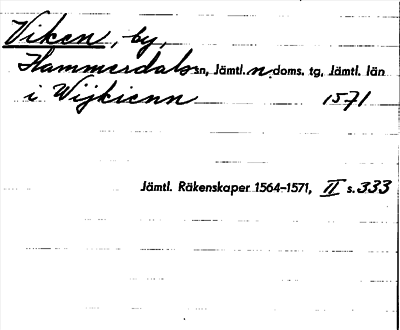 Viken, by,
Hammerdals sn, Jämtl. n. doms. tg, Jämtl. län
i Wijkienn 1571
Jämtl. Räkenskaper 1564–1571, II s. 333